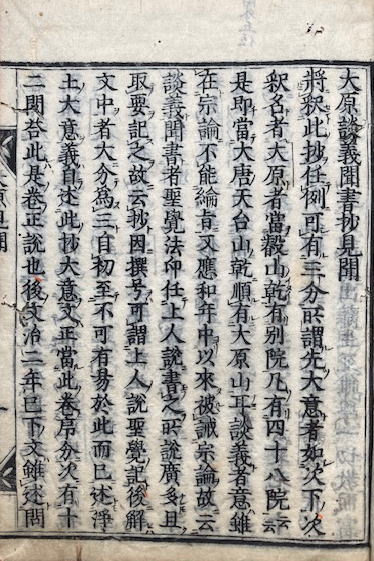 大原談義聞書抄見聞
將釈此抄任例可有三分所謂先大意者如次下次
釈名者大原者當叡山乾有別院凡有四十八院云云
是即當大唐天台山乾順有大原山耳談義者意雖
在宗論不能論旨又應和年中以來被誡宗論故云
談義聞書者聖覺法印任上人說書之所說廣多且
取要記之故云抄因撰号可謂上人說聖覺記後解
文中者大分為三自初至不可有易於此而已述淨
土大意義自述此抄大意文正當此卷序分次有十
二問答此是卷正說也後文治二年已下文雖述問
大原見聞